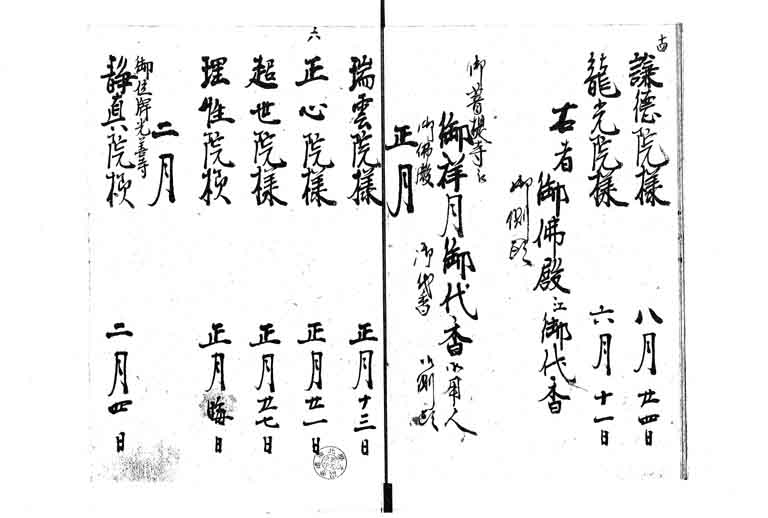 謙德院様 八月廿四日
龍光院様 六月十一日
右者御佛殿江御代香
御側頭
御菩提寺江
御祥月御代香 御用人
御佛殿 御代香 御側頭
正月
瑞雲院様 正月十三日
正心院様 正月廿一日
超世院様 正月廿七日
理性院様 正月晦日
二月
御位牌光善寺
靜真院様 二月四日
六